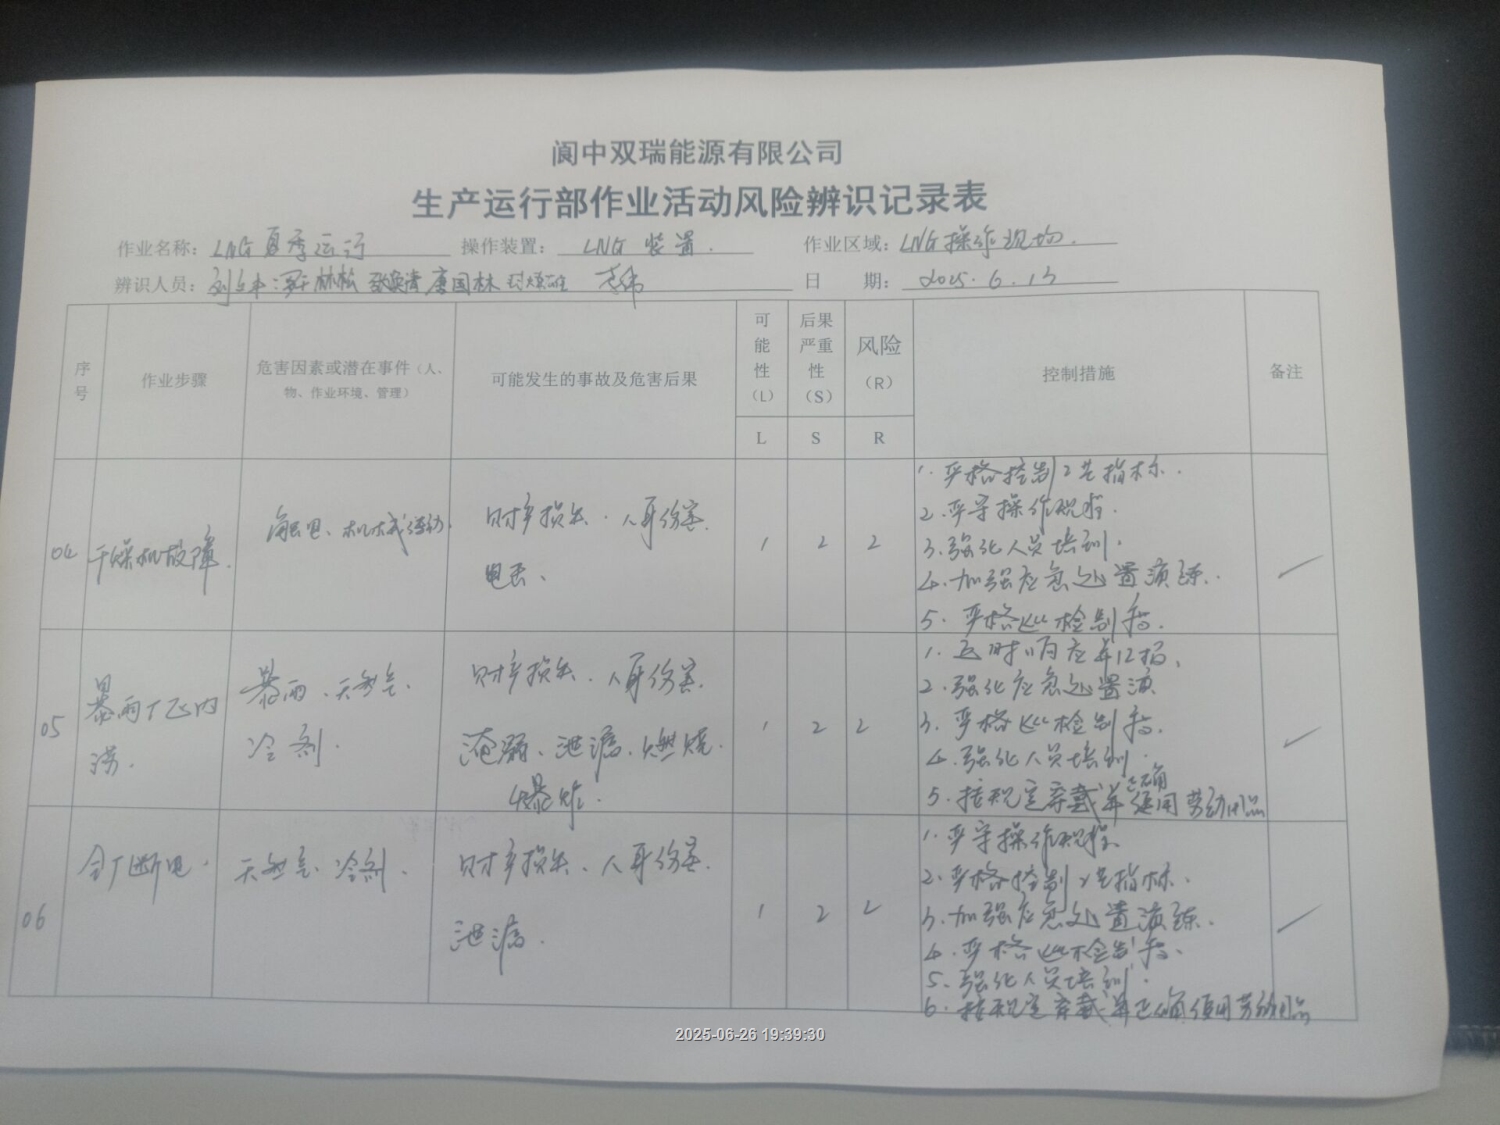 阆中双瑞能源有限公司
生产运行部作业活动风险辨识记录表
作业名称：LNG夏季运行 操作装置：LNG 装置. 作业区域：LNG操作现场.
辨识人员： 唐国林 日 期：2025.6.13
序号 作业步骤 危害因素或潜在事件（人、物、作业环境、管理） 可能发生的事故及危害后果 可能性（L） 后果严重性（S） 风险（R） 控制措施 备注
L S R
04 干燥机故障. 触电、机械传动. 财产损失.人身伤害. 电击、 1 2 2
1.严格控制工艺指标.
2.严守操作规程.
3.强化人员培训.
4.加强应急处置演练.
5.严格巡检制度.
05 暴雨厂区内涝. 暴雨.天然气.冷剂. 财产损失.人身伤害. 淹溺、泄漏.燃烧.爆炸. 1 2 2
1.及时
2.强化应急处置演
3.严格巡检制度.
4.强化人员培训.
5.按规定穿戴并正确使用劳动用品
06 全厂断电. 天然气、冷剂. 财产损失、人身伤害. 泄漏. 1 2 2
1.严守操作规程.
2.严格控制工艺指标.
3.加强应急处置演练.
4.严格巡检制度.
5.强化人员培训.
6.按规定穿戴并正确使用劳动用品
2025-06-26 19:39:30